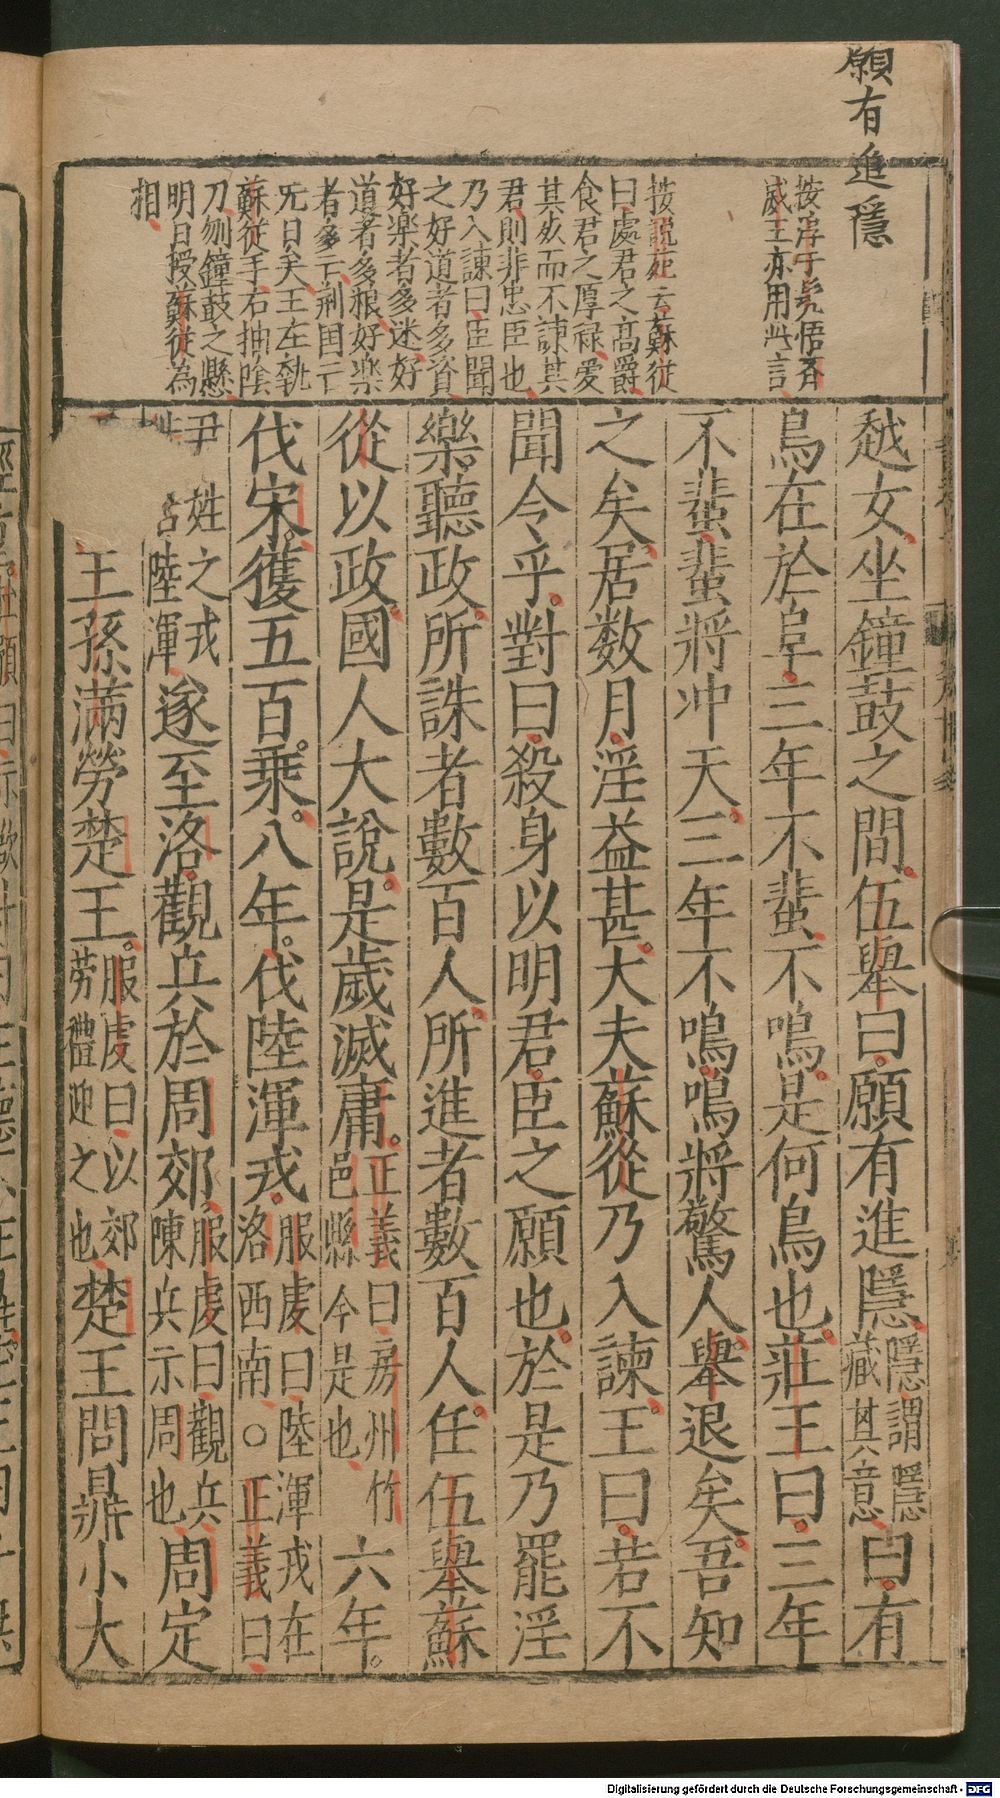 願有進隱
按淳于髠悟齊
威王亦用此言
按說苑云蘇從
曰處君之高爵
食君之厚祿愛
其死而不諫其
君則非忠臣也
乃入諫曰臣聞
之好道者多資
好樂者多迷好
道者多粮好樂
者多亡荊国亡
旡日矣王左執
蘇從手右抽陰
刀刎鐘鼓之懸
明日授蘇從為
相
越女坐鐘鼓之間伍舉曰願有進隱隱謂隱藏其意曰有
鳥在於阜三年不蜚不鳴是何鳥也莊王曰三年
不蜚蜚將冲天三年不鳴鳴將驚人舉退矣吾知
之矣居数月淫益甚大夫蘇從乃入諫王曰若不
聞令乎對曰殺身以明君臣之願也於是乃罷淫
樂聽政所誅者數百人所進者數百人任伍舉蘇
從以政國人大說是歲滅庸正義曰房州竹邑縣今是也六年
伐宋獲五百乘八年伐陸渾戎服虔曰陸渾戎在洛西南○正義曰
尹姓之戎陸渾遂至洛觀兵於周郊服虔曰觀兵陳兵示周也周定
王孫滿勞楚王服虔曰以郊勞禮迎之也楚王問鼎小大
Digitalisierung gefördert durch die Deutsche Forschungsgemeinschaft - DFG